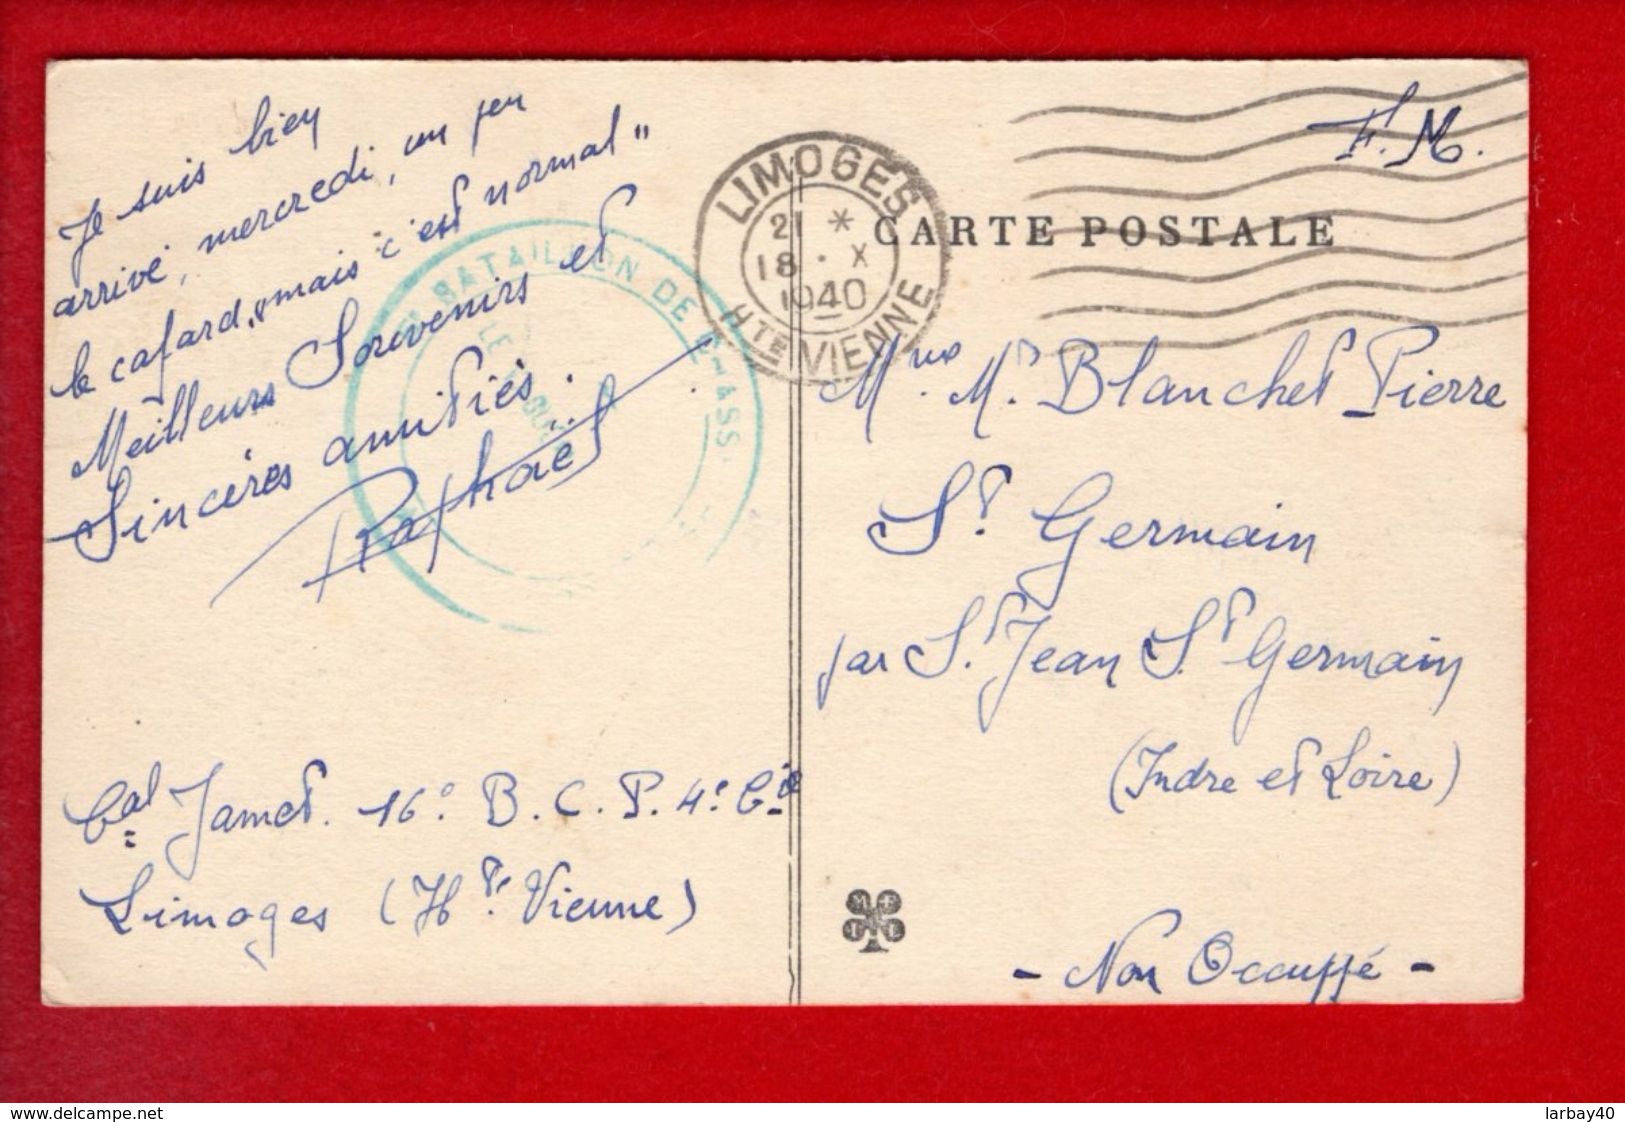 Je suis bien
arrivé, mercredi, un peu
le cafard, mais "c'est normal"
Meilleurs Souvenirs et
Sincères amitiés.
Raphaël
Cal Jamet. 16° B. C. P. 4e Cie
Limoges (Hte Vienne)
BATAILLON DE CHASS
LIMOGES
21 *
18 · X
1940
HTE VIENNE
F. M.
CARTE POSTALE
Mr Blanchet Pierre
St Germain
par St Jean St Germain
(Indre et Loire)
- Non Occuppé -
www.delcampe.net
larbay40